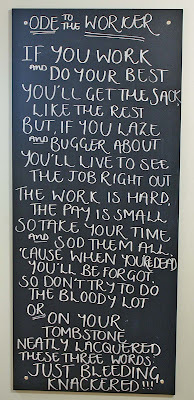 • ODE TO THE WORKER •
IF YOU WORK
AND DO YOUR BEST
YOU'LL GET THE SACK
LIKE THE REST
BUT, IF YOU LAZE
AND BUGGER ABOUT
YOU'LL LIVE TO SEE
THE JOB RIGHT OUT
THE WORK IS HARD,
THE PAY IS SMALL
SO TAKE YOUR TIME
AND SOD THEM ALL
'CAUSE WHEN YOU'RE DEAD
YOU'LL BE FORGOT
SO DON'T TRY TO DO
THE BLOODY LOT
OR
ON YOUR
TOMBSTONE
NEATLY LACQUERED
THESE THREE WORDS
JUST BLEEDING
KNACKERED!!!